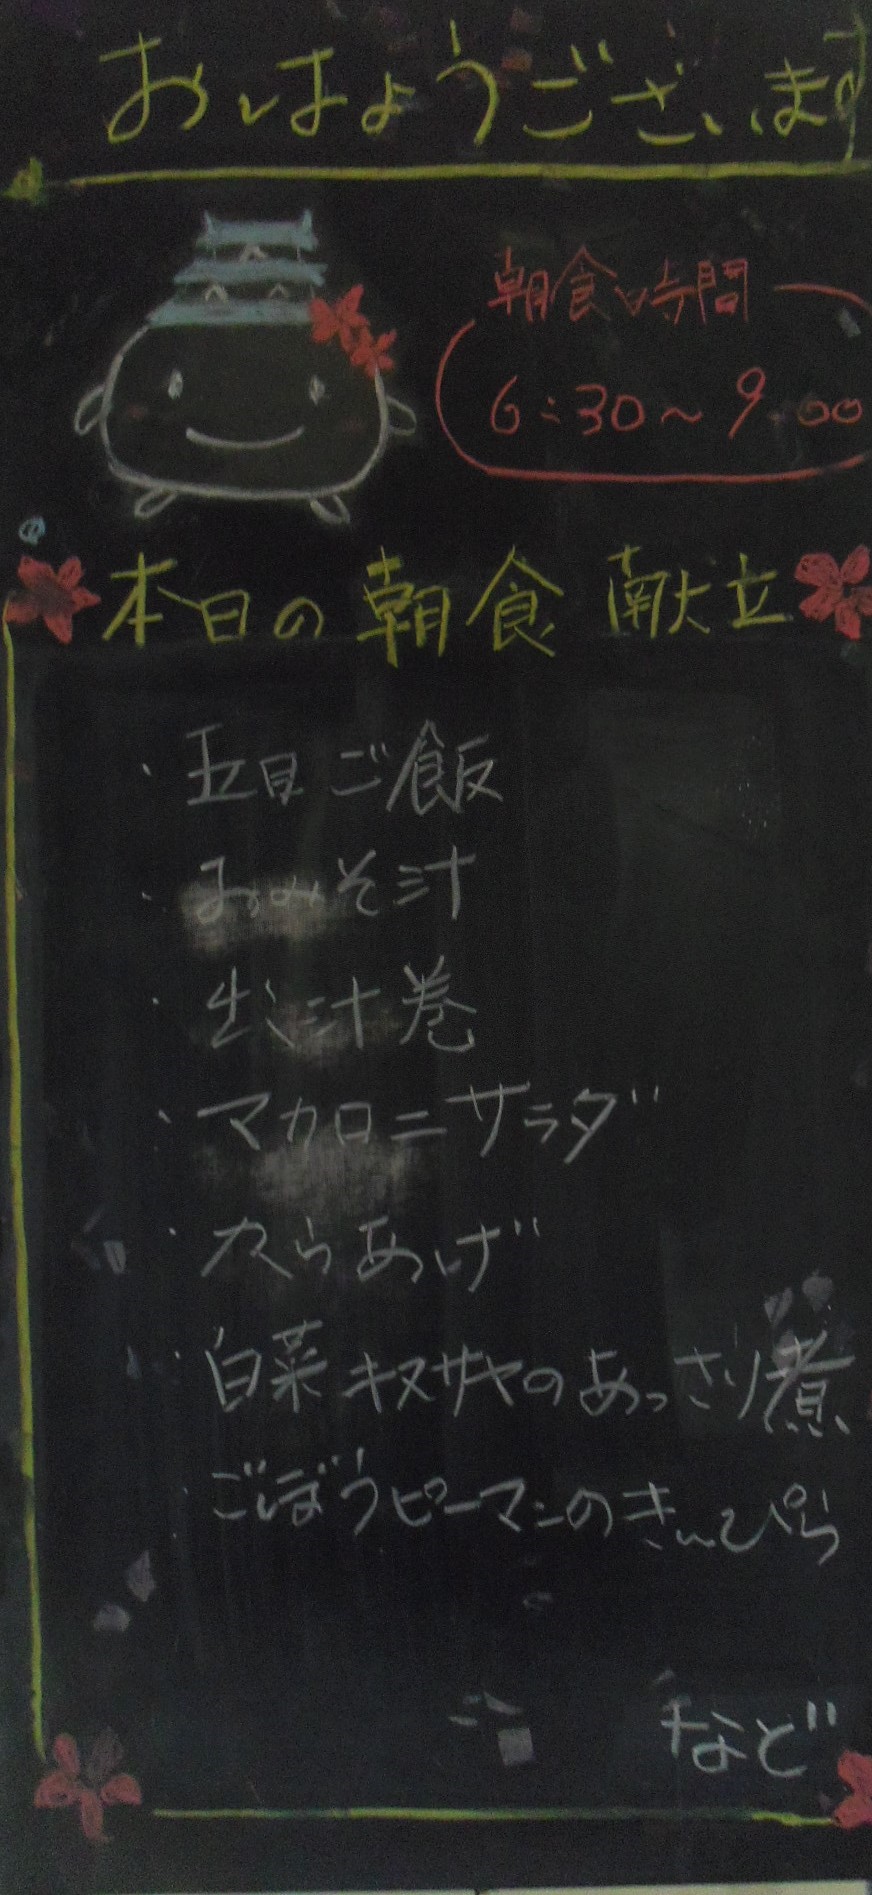 おはようございます
朝食時間
6:30~9:00
本日の朝食献立
・五目ご飯
・おみそ汁
・出し汁巻
・マカロニサラダ
・からあげ
・白菜キヌサヤのあっさり煮
・ごぼうピーマンのきんぴら
など